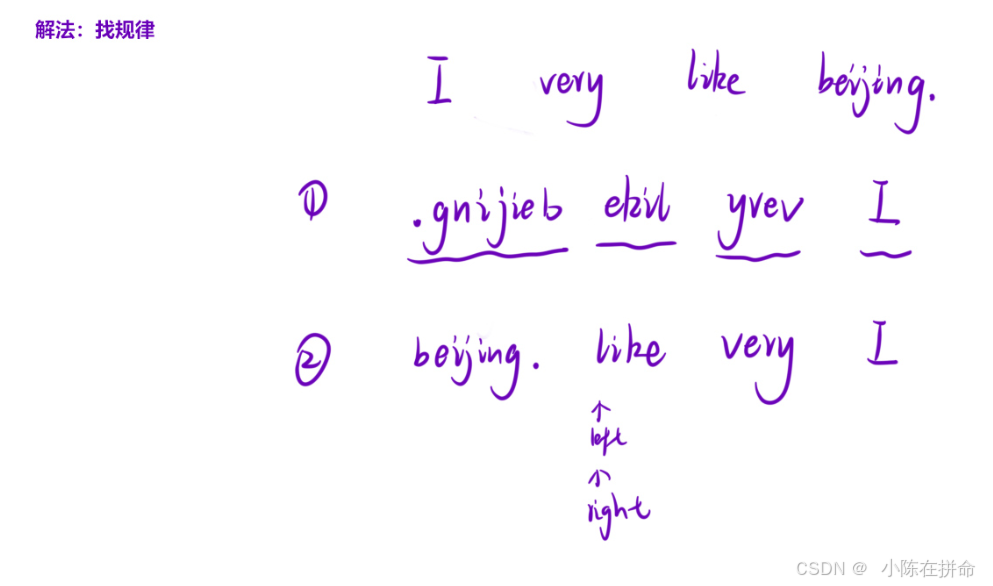 解法：找规律
I very like beijing.
① .gnijieb ekil yrev I
② beijing. like very I
↑
left
↑
right
CSDN @ 小陈在拼命